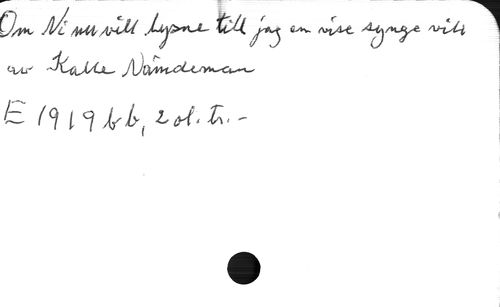 Om Ni nu vill lysne till jag en vise synge vill
av Kalle Nämdeman
E 1919 bb, 2 ol. tr. -